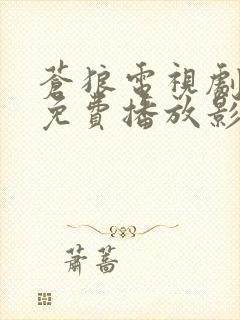 蒼狼電視劇
免費播放影
蕭蒿